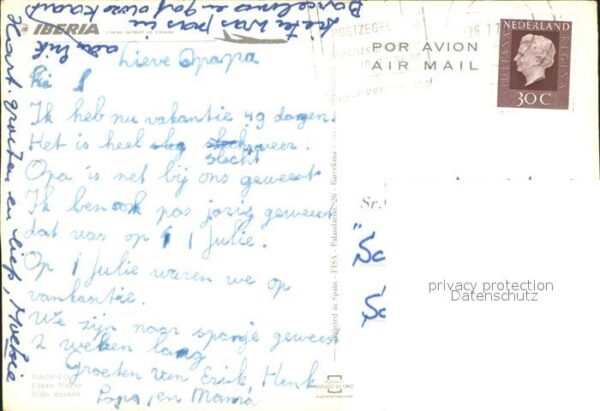 Pieter was pas in
Barcelona en gaf deze kaart
aan ik
Hart. groeten en liefs,
IBERIA
LINEAS AEREAS DE ESPAÑA
POSTZEGEL
26.7.7
NEDERLAND
JULIANA REGINA
30 C
POR AVION
AIR MAIL
Lieve Opapa
Ik heb nu vakantie 49 dagen.
Het is heel slecht weer.
Opa is net bij ons geweest
Ik ben ook pas jarig geweest
dat was op 1 Julie.
Op 1 Julie waren we op
vankantie.
We zijn naar spanje geweest
2 weken lang
Groeten van Erik, Henk
Papa, en Mama
Plaza Mayor
Main square
Printed in Spain - FISA - Palaudarias, 26 - Barcelona
Sr.
privacy protection
Datenschutz